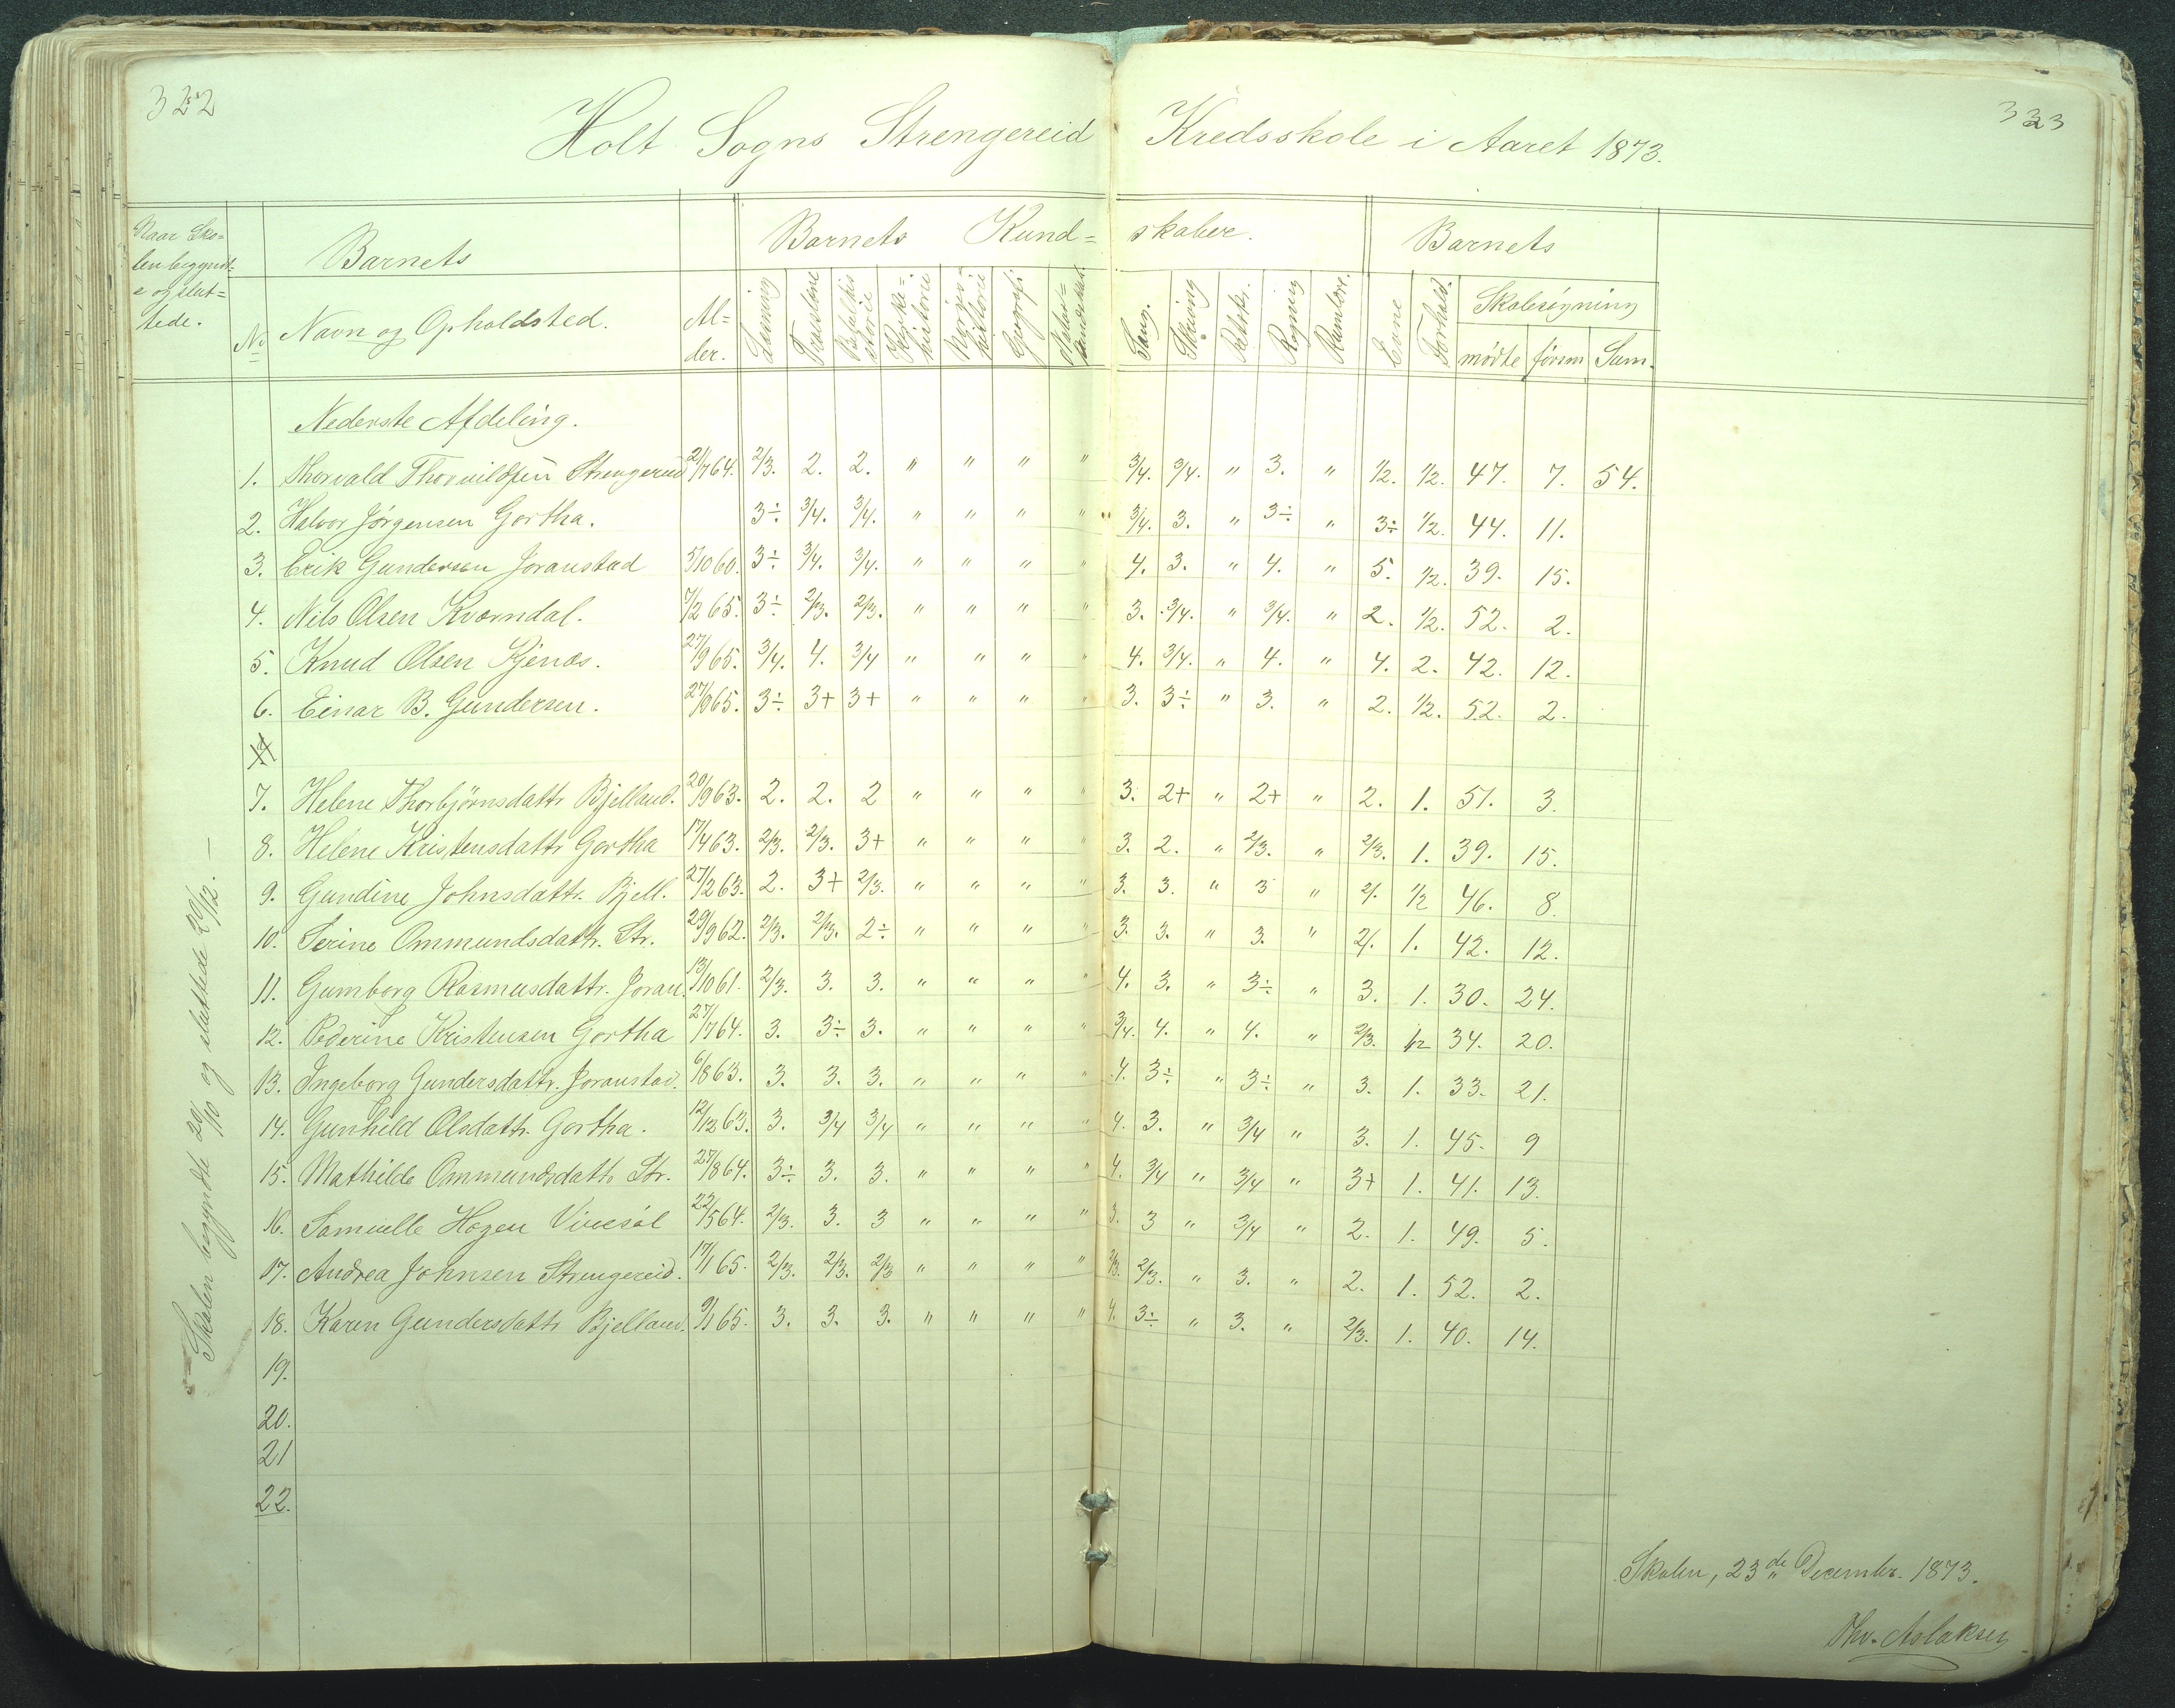 322
323
Holt Sogns Strengereid Kredsskole i Aaret 1873.
Naar Sko=
len begynd=
e og slut=
tede.
No
Barnets
Navn og Opholdsted.
Al=
der.
Barnets Kund= skaber.
Læsning
Troeslære
Kirke=
historie
Geografi
Sang.
Skrivning
Retskr.
Regning
Rumlære.
Barnets
Evne
Forhold.
Skolesøgning
mødte forsm Sum.
Nederste Afdeling.
1. Thorvald Strengereid 21/7 64. 2/3. 2. 2. " " " " 3/4. 3/4. " 3. " 1/2. 1/2. 47. 7. 54.
2. Halvor Jørgensen Gortha. 3÷ 3/4. 3/4. " " " " 3/4. 3. " 3÷ " 3÷ 1/2. 44. 11.
3. Erik Gundersen Joranstad 5/10 60. 3÷ 3/4. 3/4. " " " " 4. 3. " 4. " 5. 1/2. 39. 15.
4. Nils Olsen Kværndal. 7/2 65. 3÷ 2/3. 2/3. " " " " 3. 3/4. " 3/4. " 2. 1/2. 52. 2.
5. Knud Olsen Kjenæs. 27/9 65. 3/4. 4. 3/4 " " " " 4. 3/4. " 4. " 4. 2. 42. 12.
6. Einar B. Gundersen. 27/9 65. 3÷ 3+ 3+ " " " " 3. 3÷ " 3. " 2. 1/2. 52. 2.
7. Helene Thorbjørnsdattr Bjelland. 20/9 63. 2. 2. 2 " " " " 3. 2+ " 2+ " 2. 1. 51. 3.
8. Helene Kristensdattr Gortha 17/4 63. 2/3. 2/3. 3+ " " " " 3. 2. " 2/3. " 2/3. 1. 39. 15.
9. Gundine Johnsdattr. Bjell. 27/2 63. 2. 3+ 2/3. " " " " 3. 3. " 3 " 2/. 1/2 46. 8.
10. Serine Ommundsdattr. Str. 29/9 62. 2/3. 2/3. 2÷ " " " " 3. 3. " 3. " 2/. 1. 42. 12.
11. Gumborg Rasmusdattr. Joran. 13/10 61. 2/3. 3. 3. " " " " 4. 3. " 3÷ " 3. 1. 30. 24.
12. Pederine Kristensen Gortha 27/7 64. 3. 3÷ 3. " " " " 3/4. 4. " 4. " 2/3. 1/2 34. 20.
13. Ingeborg Gundersdattr. Joranstad. 6/8 63. 3. 3. 3. " " " " 4. 3÷ " 3÷ " 3. 1. 33. 21.
14. Gunhild Olsdattr. Gortha. 12/12 63. 3. 3/4 3/4 " " " " 4. 3. " 3/4 " 3. 1. 45. 9
15. Mathilde Ommundsdattr Str. 27/8 64. 3÷ 3. 3. " " " " 4. 3/4 " 3/4 " 3+ 1. 41. 13.
16. Samuelle Hagen 22/5 64. 2/3. 3. 3 " " " " 3. 3 " 3/4 " 2. 1. 49. 5.
17. Andrea Johnsen Strengereid. 17/1 65. 2/3. 2/3. 2/3 " " " " 2/3. 2/3. " 3. " 2. 1. 52. 2.
18. Karen Gundersdattr Bjelland. 9/1 65. 3. 3. 3. " " " " 4. 3÷ " 3. " 2/3. 1. 40. 14.
19.
20.
21
22.
Skolen begyndte 20/10 og sluttede 20/12. —
Skolen, 23de December 1873.
Thv. Aslaksen